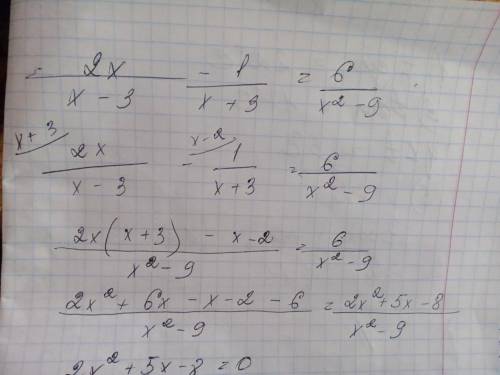 - 2x/(x - 3) - 1/(x + 3) = 6/(x² - 9)
x + 3 2x/(x - 3) - x - 2 1/(x + 3) = 6/(x² - 9)
(2x(x + 3) - x - 2)/(x² - 9) = 6/(x² - 9)
(2x² + 6x - x - 2 - 6)/(x² - 9) = (2x² + 5x - 8)/(x² - 9)
2x² + 5x - 8 = 0